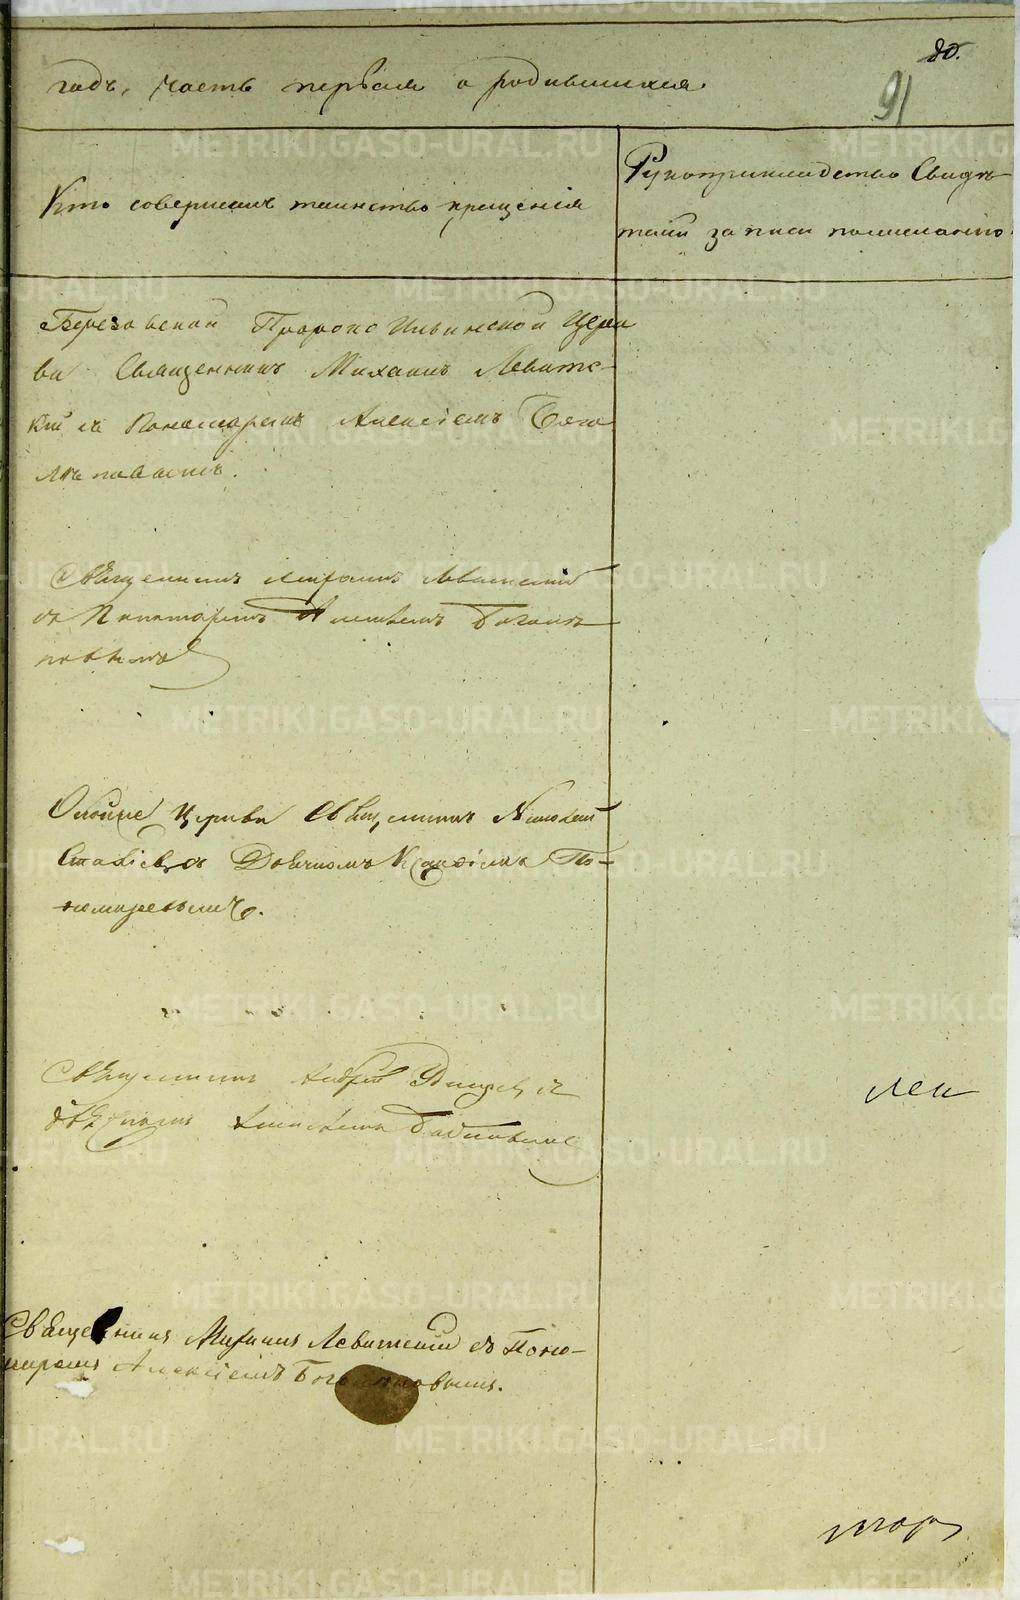 80.
91
годъ, часть первая о родившихся
Кто совершалъ таинство крещенія
Рукоприкладство Свидѣ
телей записи по желанію
Березовской Пророко Ильинской Церк
ви Священникъ Михаилъ Левитс-
кій съ Пономаремъ Алексіемъ Бого
лѣповымъ.
Священникъ Михаилъ Левитскій
съ Пономаремъ Алексѣемъ Боголѣ
повымъ
Оной же Церкви Священникъ Николай
съ Дьячкомъ По-
номаревымъ.
Священникъ Андрей
Алексѣемъ
лен
Священникъ Михаилъ Левитскій съ Поно-
маремъ Алексіемъ Боголѣповымъ.
METRIKI.GASO-URAL.RU